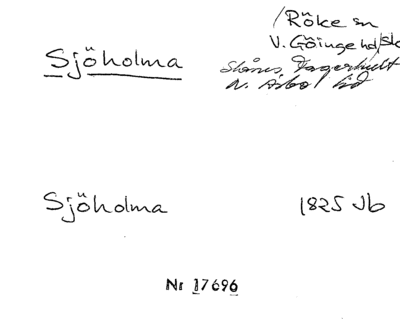 Sjöholma
/Röke sn
V. Göinge hd/Sk
Skånes Fagerhult
N. Åsbo hd
Sjöholma
1825 Jb
Nr 17696